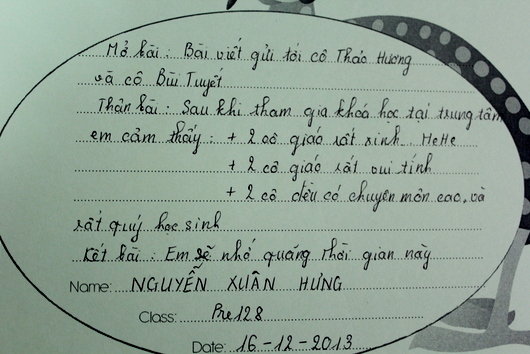 Mở bài : Bài viết gửi tới cô Thảo Hương
và cô Bùi Tuyết
Thân bài : Sau khi tham gia khoá học tại trung tâm
em cảm thấy : + 2 cô giáo rất xinh. HeHe
+ 2 cô giáo rất vui tính
+ 2 cô đều có chuyên môn cao, và
rất quý học sinh
Kết bài : Em sẽ nhớ quãng thời gian này
Name: NGUYỄN XUÂN HƯNG
Class: Pre128
Date: 16-12-2013